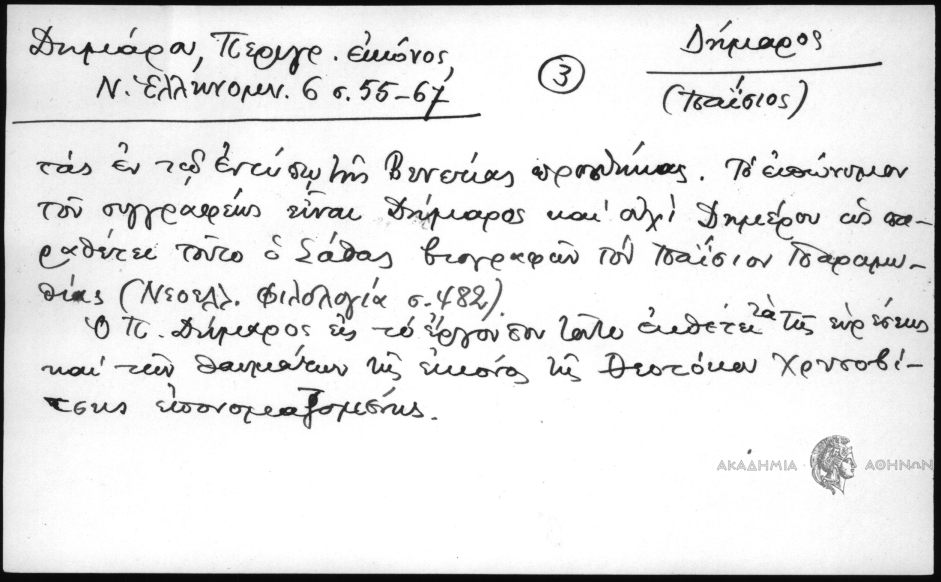 Δημάρου, Περιγρ. εἰκόνος,
Ν. Ἑλληνομν. 6 σ. 55-67
3
Δήμαρος
(Παΐσιος)
τὰς ἐν τῷ ἐντύπῳ τῆς Βενετίας προσθήκας. Τὸ ἐπώνυμον
τοῦ συγγραφέως εἶναι Δήμαρος καὶ οὐχὶ Δημάρου ὡς πα-
ραθέτει τοῦτο ὁ Σάθας βιογραφῶν τὸν Παΐσιον Παραμυ-
θίας (Νεοελλ. Φιλολογία σ. 482).
Ὁ Π. Δήμαρος εἰς τὸ ἔργον του τοῦτο ἐκθέτει τὰ τῆς εὑρέσεως
καὶ τῶν θαυμάτων τῆς εἰκόνος τῆς Θεοτόκου Χρυσοβί-
τσης ἐπονομαζομένης.
ΑΚΑΔΗΜΙΑ ΑΘΗΝΩΝ